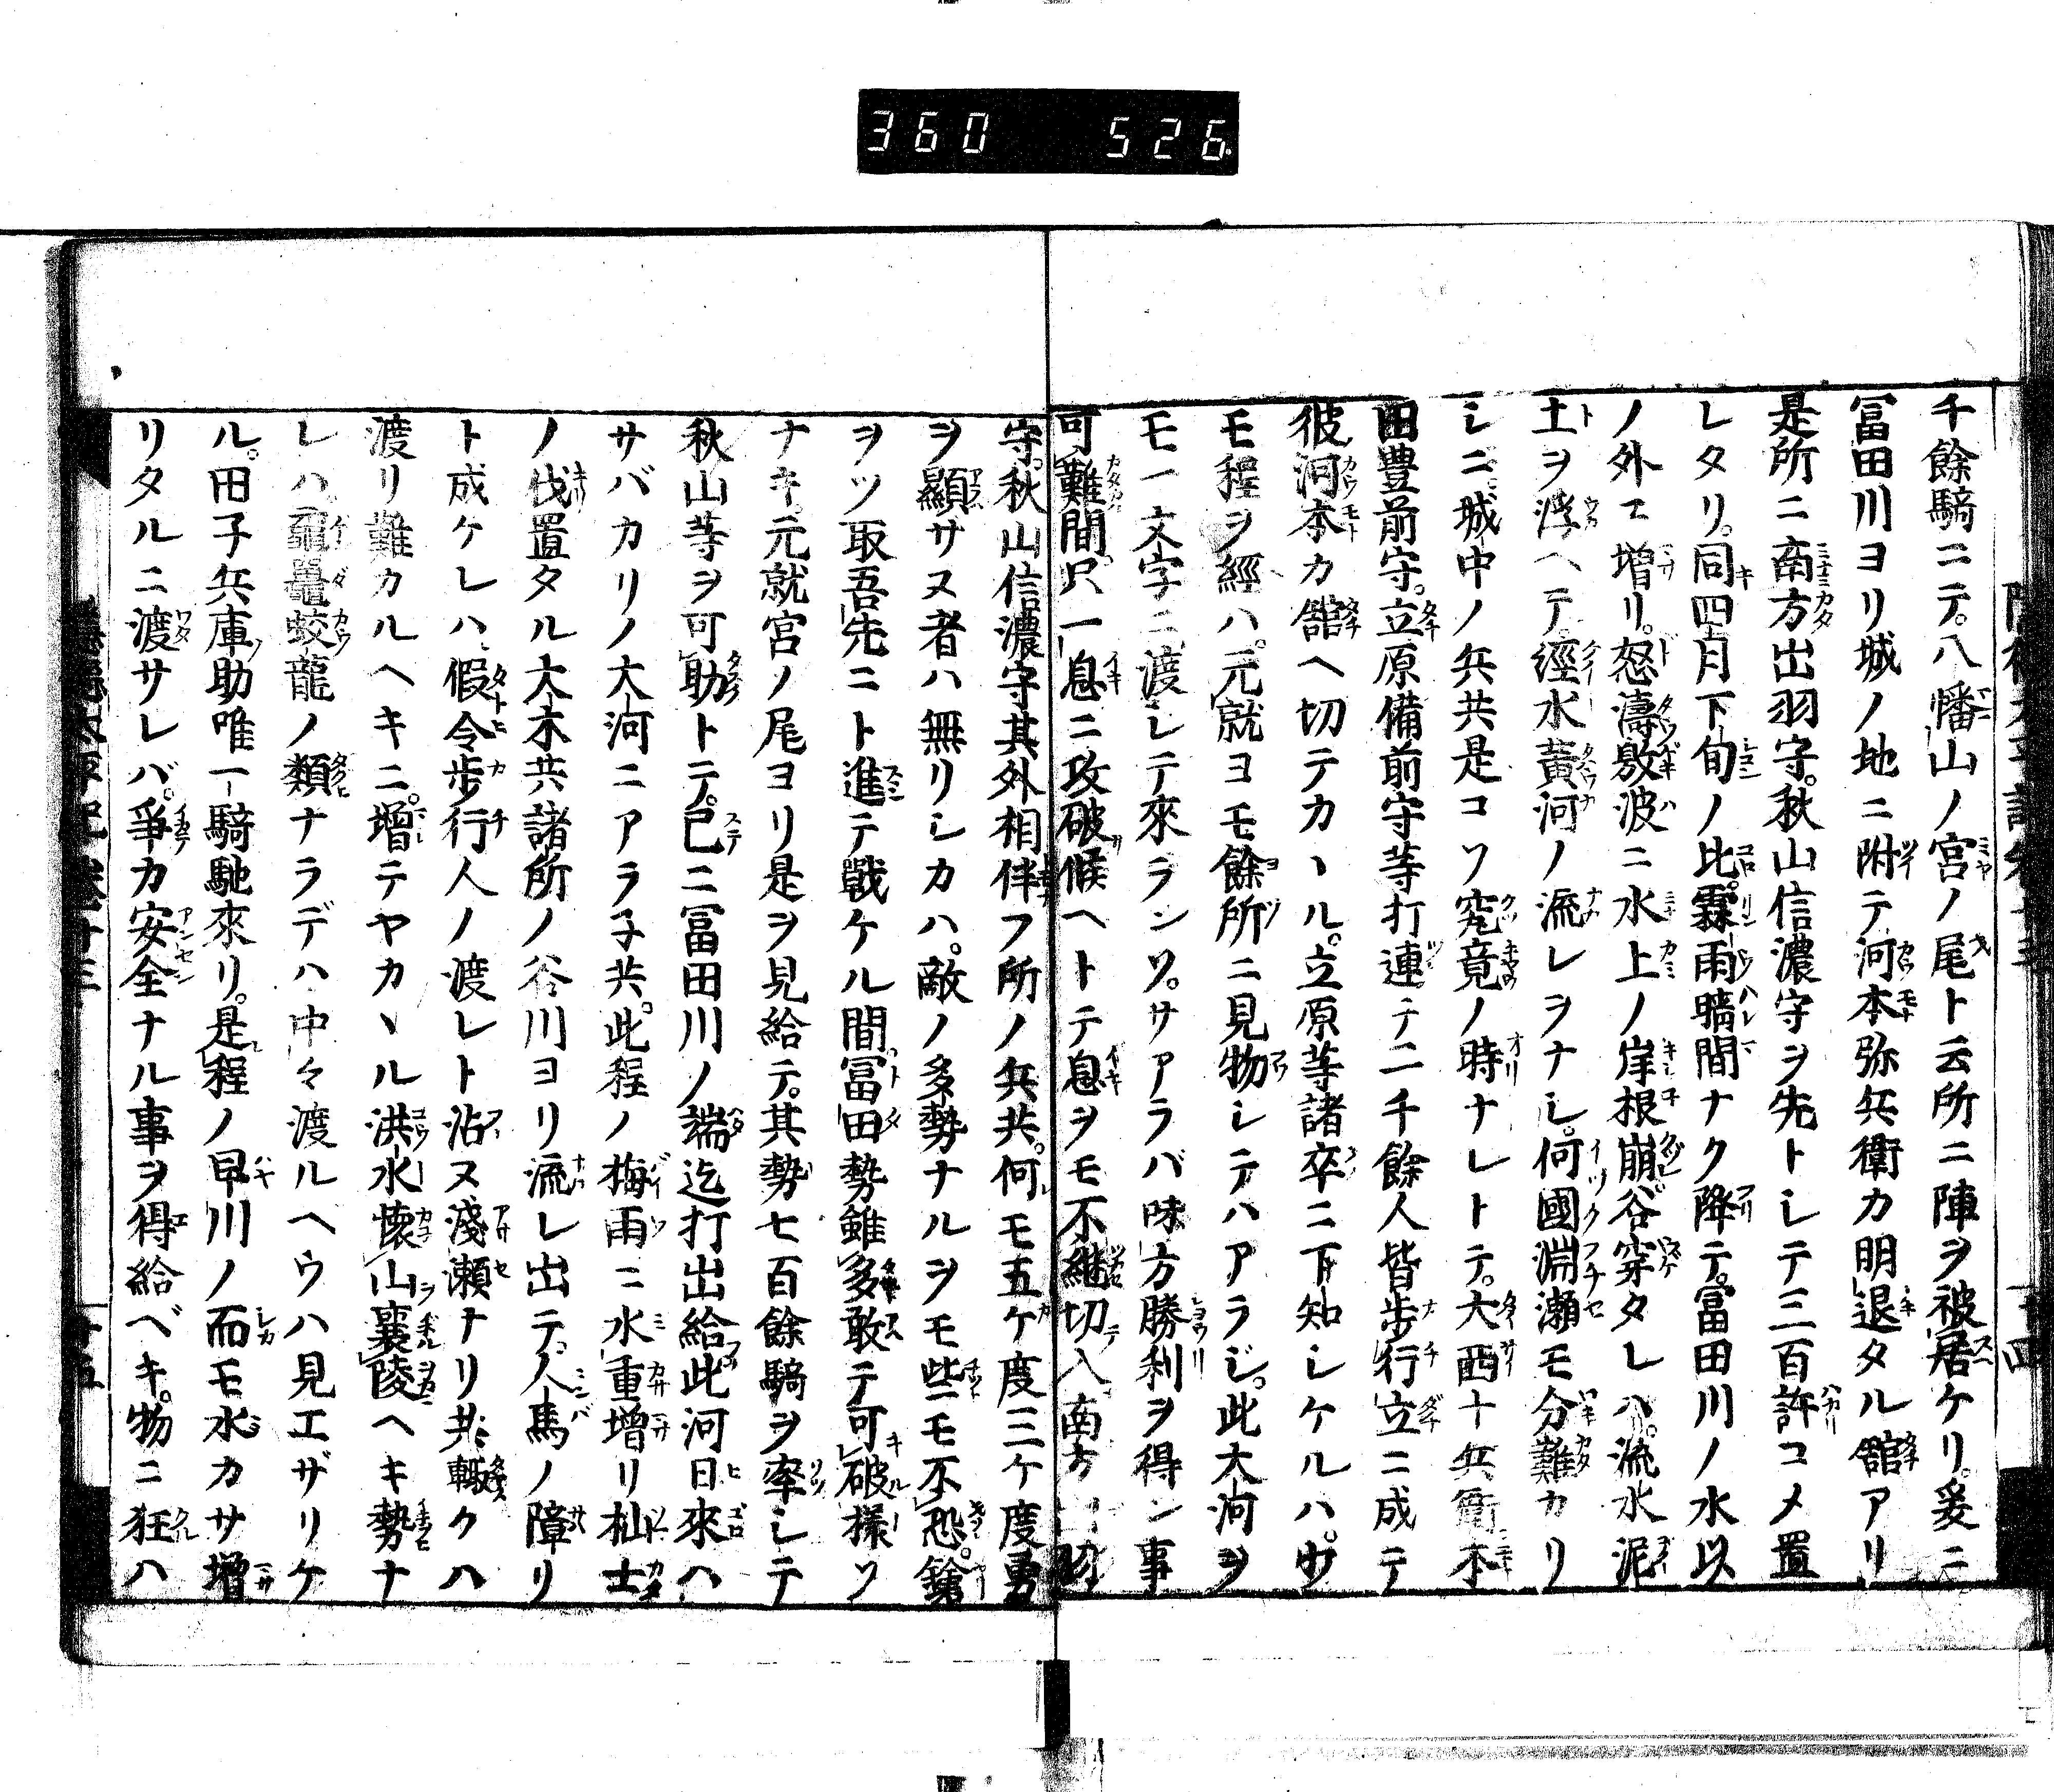 360 526
千餘騎ニテ。八幡山ノ宮ノ尾ト云所ニ陣ヲ被居ケリ。爰ニ
冨田川ヨリ城ノ地ニ附テ河本弥兵衛カ明退タル舘アリ
是所ニ南方出羽守。秋山信濃守ヲ先トシテ三百許コメ置
レタリ。同四月下旬ノ比。霖雨晴間ナク降テ。冨田川ノ水以
ノ外ニ増リ。怒濤激波ニ水上ノ岸根崩。谷穿タレハ。流水泥
土ヲ浮ヘテ經水黄河ノ流レヲナシ。何國淵瀬モ分難カリ
シニ。城中ノ兵共是コソ究竟ノ時ナレトテ。大西十兵衛本
田豊前守。立原備前守等打連テ二千餘人皆歩行立ニ成テ
彼河本カ舘ヘ切テカヽル。立原等諸卒ニ下知シケルハ。少
モ程ヲ經ハ。元就ヨモ餘所ニ見物シテハアラジ。此大河ヲ
モ一文字ニ渡シテ來ランソ。サアラバ味方勝利ヲ得ン事
可難間只一息ニ攻破候ヘトテ息ヲモ不継切入南方
守。秋山信濃守其外相伴フ所ノ兵共。何モ五ケ度三ケ度勇
ヲ顯サヌ者ハ無リシカハ。敵ノ多勢ナルヲモ些ニモ不恐。鎗
ヲツ取吾先ニト進テ戰ケル間冨田勢雖多敢テ可破様ソ
ナキ。元就宮ノ尾ヨリ是ヲ見給テ。其勢七百餘騎ヲ率シテ
秋山等ヲ可助トテ。已ニ冨田川ノ端迄打出給此河日來ヘ
サバカリノ大河ニアラ子共。此程ノ梅雨ニ水重増リ杣士
ノ伐置タル大木共諸所ノ谷川ヨリ流レ出テ。人馬ノ障リ
ト成ケレハ。假令歩行人ノ渡シト沾ヌ淺瀬ナリ共輙クハ
渡リ難カルヘキニ。増テヤカヽル洪水懐山襄陵ヘキ勢ナ
レハ黿鼉蛟龍ノ類ナラデハ中々渡ルヘウハ見エザリケ
ル。田子兵庫助唯一騎馳來リ。是程ノ早川ノ而モ水カサ増
リタルニ渡サレバ。爭カ安全ナル事ヲ得給ベキ。物ニ狂ハ